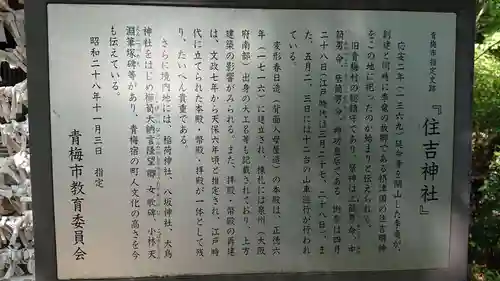 青梅市指定史跡
『住吉神社』
応安二年(一三六九)延命寺を開山した季竜が、
創建と同時に季竜の故郷である摂津国の住吉明神
をこの地に祀ったのが始まりと伝えられる。
旧青梅村の総鎮守であり、祭神は上筒男命、中
筒男命、底筒男命、神功皇后である。例祭は四月
二十八日(江戸時代は三月二十七、二十八日)。ま
た、五月二、三日には十二台の山車巡行が行われ
ている。
変形春日造(背面入母屋造)の本殿は、正徳六
年(一七一六)に建立され、棟札には泉州(大阪
府南部)出身の大工名等も記載されており、上方
建築の影響がみられる。また、拝殿・幣殿の再建
は、文政七年から天保六年頃と推定され、江戸時
代に立てられた本殿・幣殿・拝殿が一体として残
り、たいへん貴重である。
さらに境内地には、稲荷神社、八坂神社、大鳥
神社をはじめ櫛笥大納言隆望卿女歌碑、小林天
淵筆塚碑等があり、青梅宿の町人文化の高さを今
も伝えている。
昭和二十八年十一月三日 指定
青梅市教育委員会